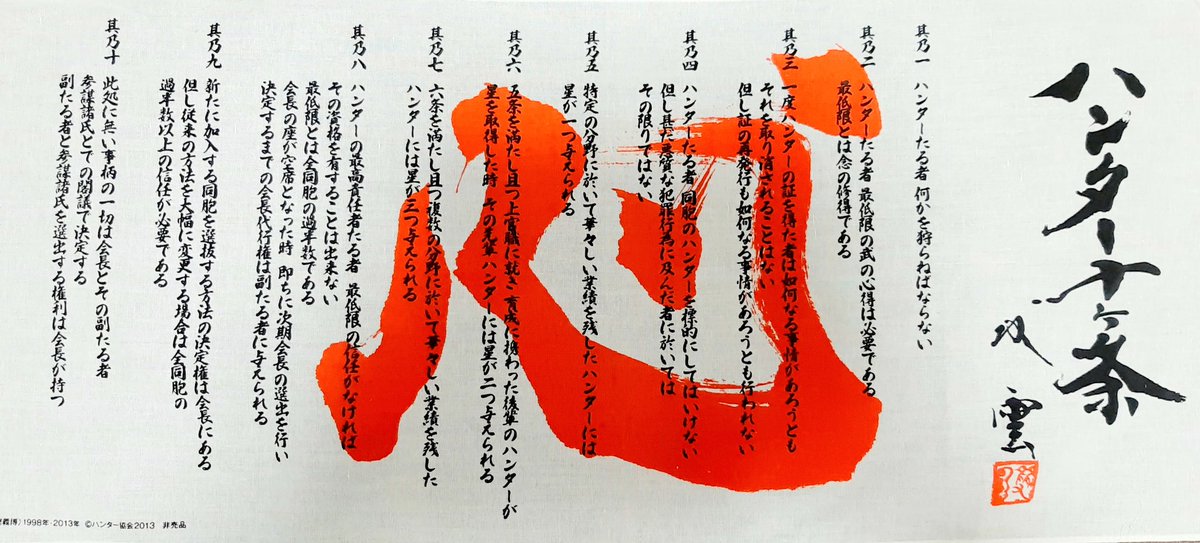 ハンター十ヶ条
其乃一
ハンターたる者 何かを狩らねばならない
其乃二
ハンターたる者 最低限の武の心得は必要である
最低限とは念の修得である
其乃三
一度ハンターの証を得た者は如何なる事情があろうとも
それを取り消されることはない
但し証の再発行も如何なる事情があろうとも行われない
其乃四
ハンターたる者 同胞のハンターを標的にしてはいけない
但し甚だ悪質な犯罪行為に及んだ者に於いては
その限りではない
其乃五
特定の分野に於いて華々しい業績を残したハンターには
星が一つ与えられる
其乃六
五条を満たし且つ上官職に就き 育成に携わった後輩のハンターが
星を取得した時 その先輩ハンターには星が二つ与えられる
其乃七
六条を満たし且つ複数の分野に於いて華々しい業績を残した
ハンターには星が三つ与えられる
其乃八
ハンターの最高責任者たる者 最低限の信任がなければ
その資格を有することは出来ない
最低限とは全同胞の過半数である
会長の座が空席となった時 即ちに次期会長の選出を行い
決定するまでの会長代行権は副たる者に与えられる
其乃九
新たに加入する同胞を選抜する方法の決定権は会長にある
但し従来の方法を大幅に変更する場合は全同胞の
過半数以上の信任が必要である
其乃十
此処に無い事柄の一切は会長とその副たる者
参謀諸氏とでの閣議で決定する
副たる者と参謀諸氏を選出する権利は会長が持つ
心
義博)1998年-2013年 ©ハンター協会2013 非売品